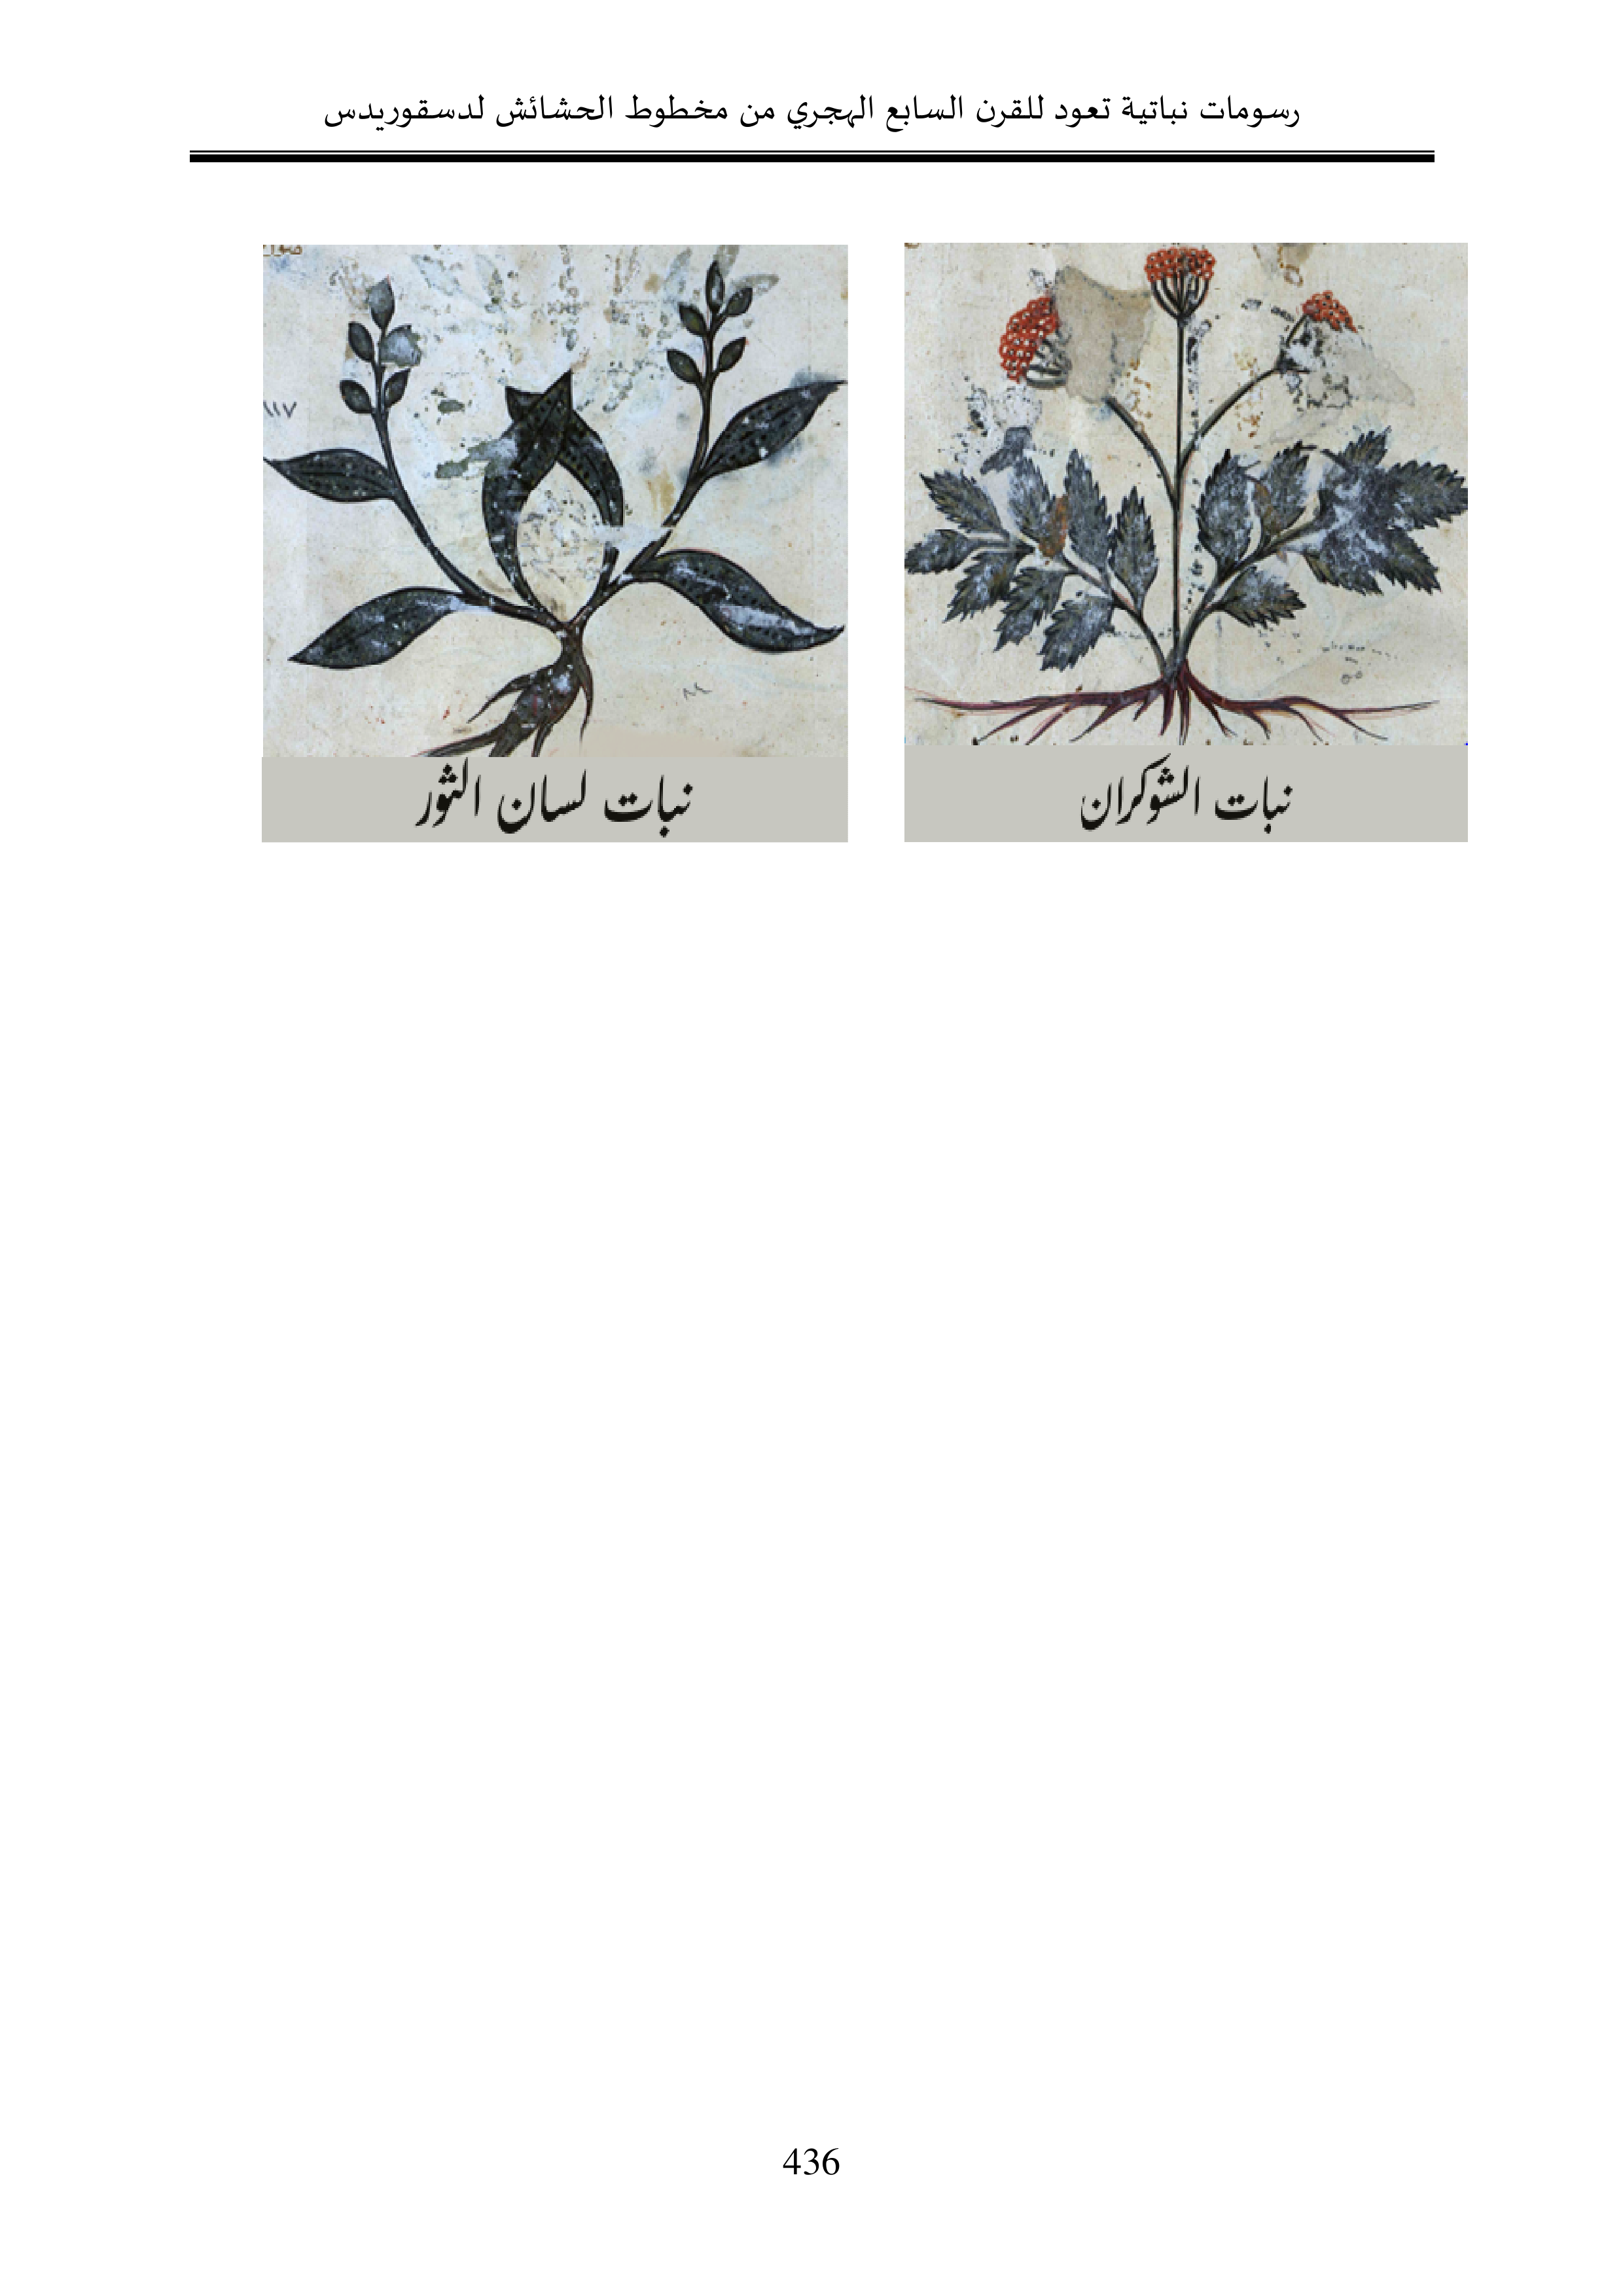 رسومات نباتية تعود للقرن السابع الهجري من مخطوط الحشائش لدسقوريدس
نبات الشوكران
١١٧
نبات لسان الثور
436